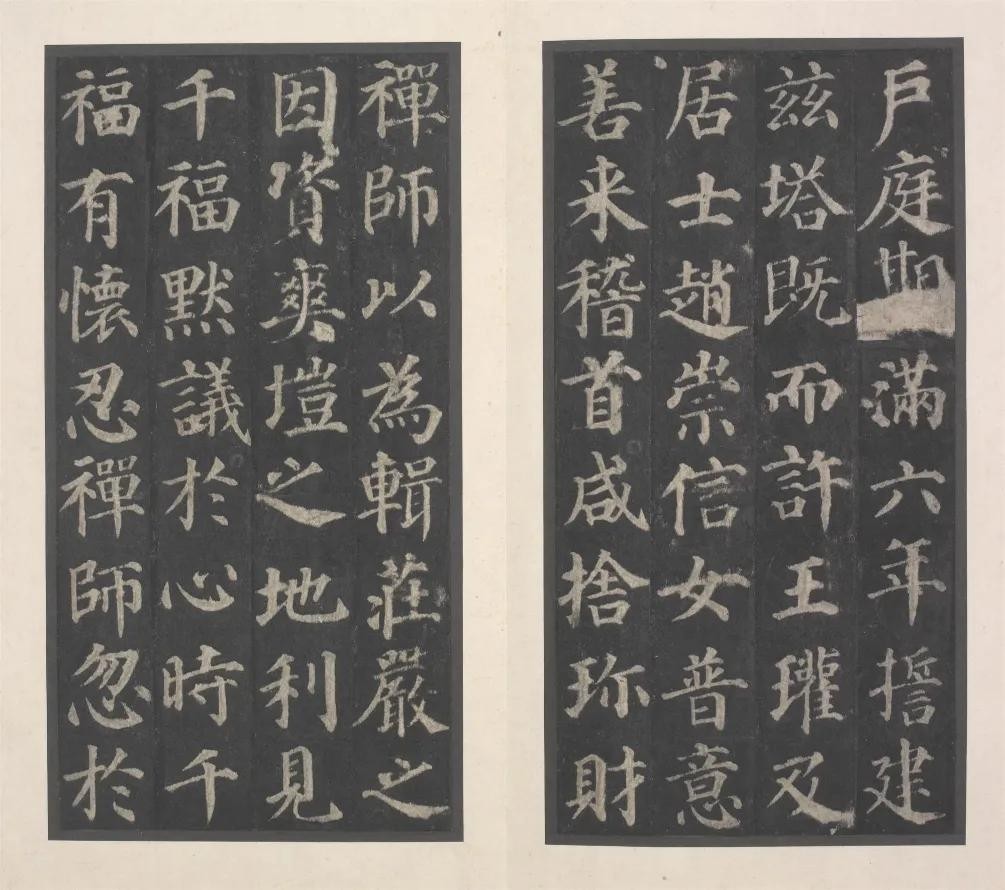 戶庭滿六年誓建
茲塔既而許王瓘及
居士趙崇信女普意
善来稽首咸捨珎財
禪師以為輯莊嚴之
因資爽塏之地利見
千福默議於心時千
福有懷忍禪師忽於